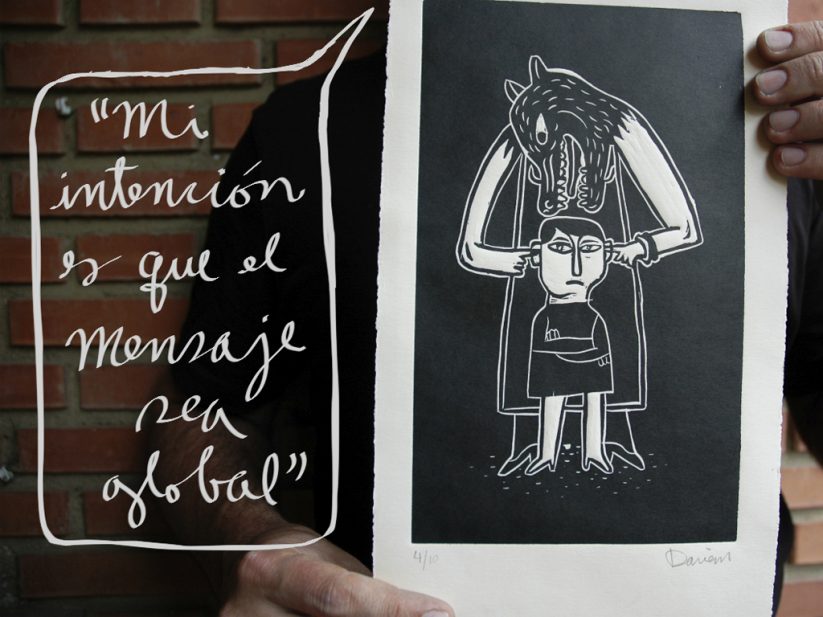 “Mi
intención
es que el
mensaje
sea
global”
4/10
Darien